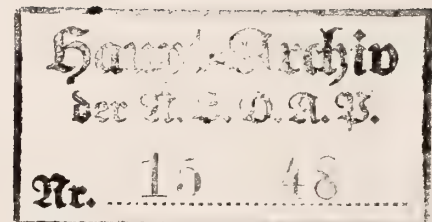 Haupt-Archiv
der N.S.D.A.P.
Nr. 15 48